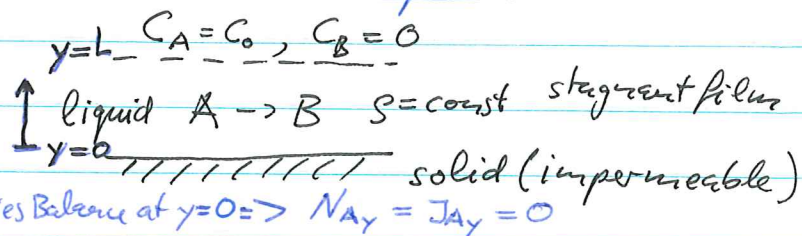 y=L C_A = C_0 , C_B = 0
liquid A -> B ρ=const stagnant film
y=0
solid (impermeable)
es Balance at y=0 => N_Ay = J_Ay = 0